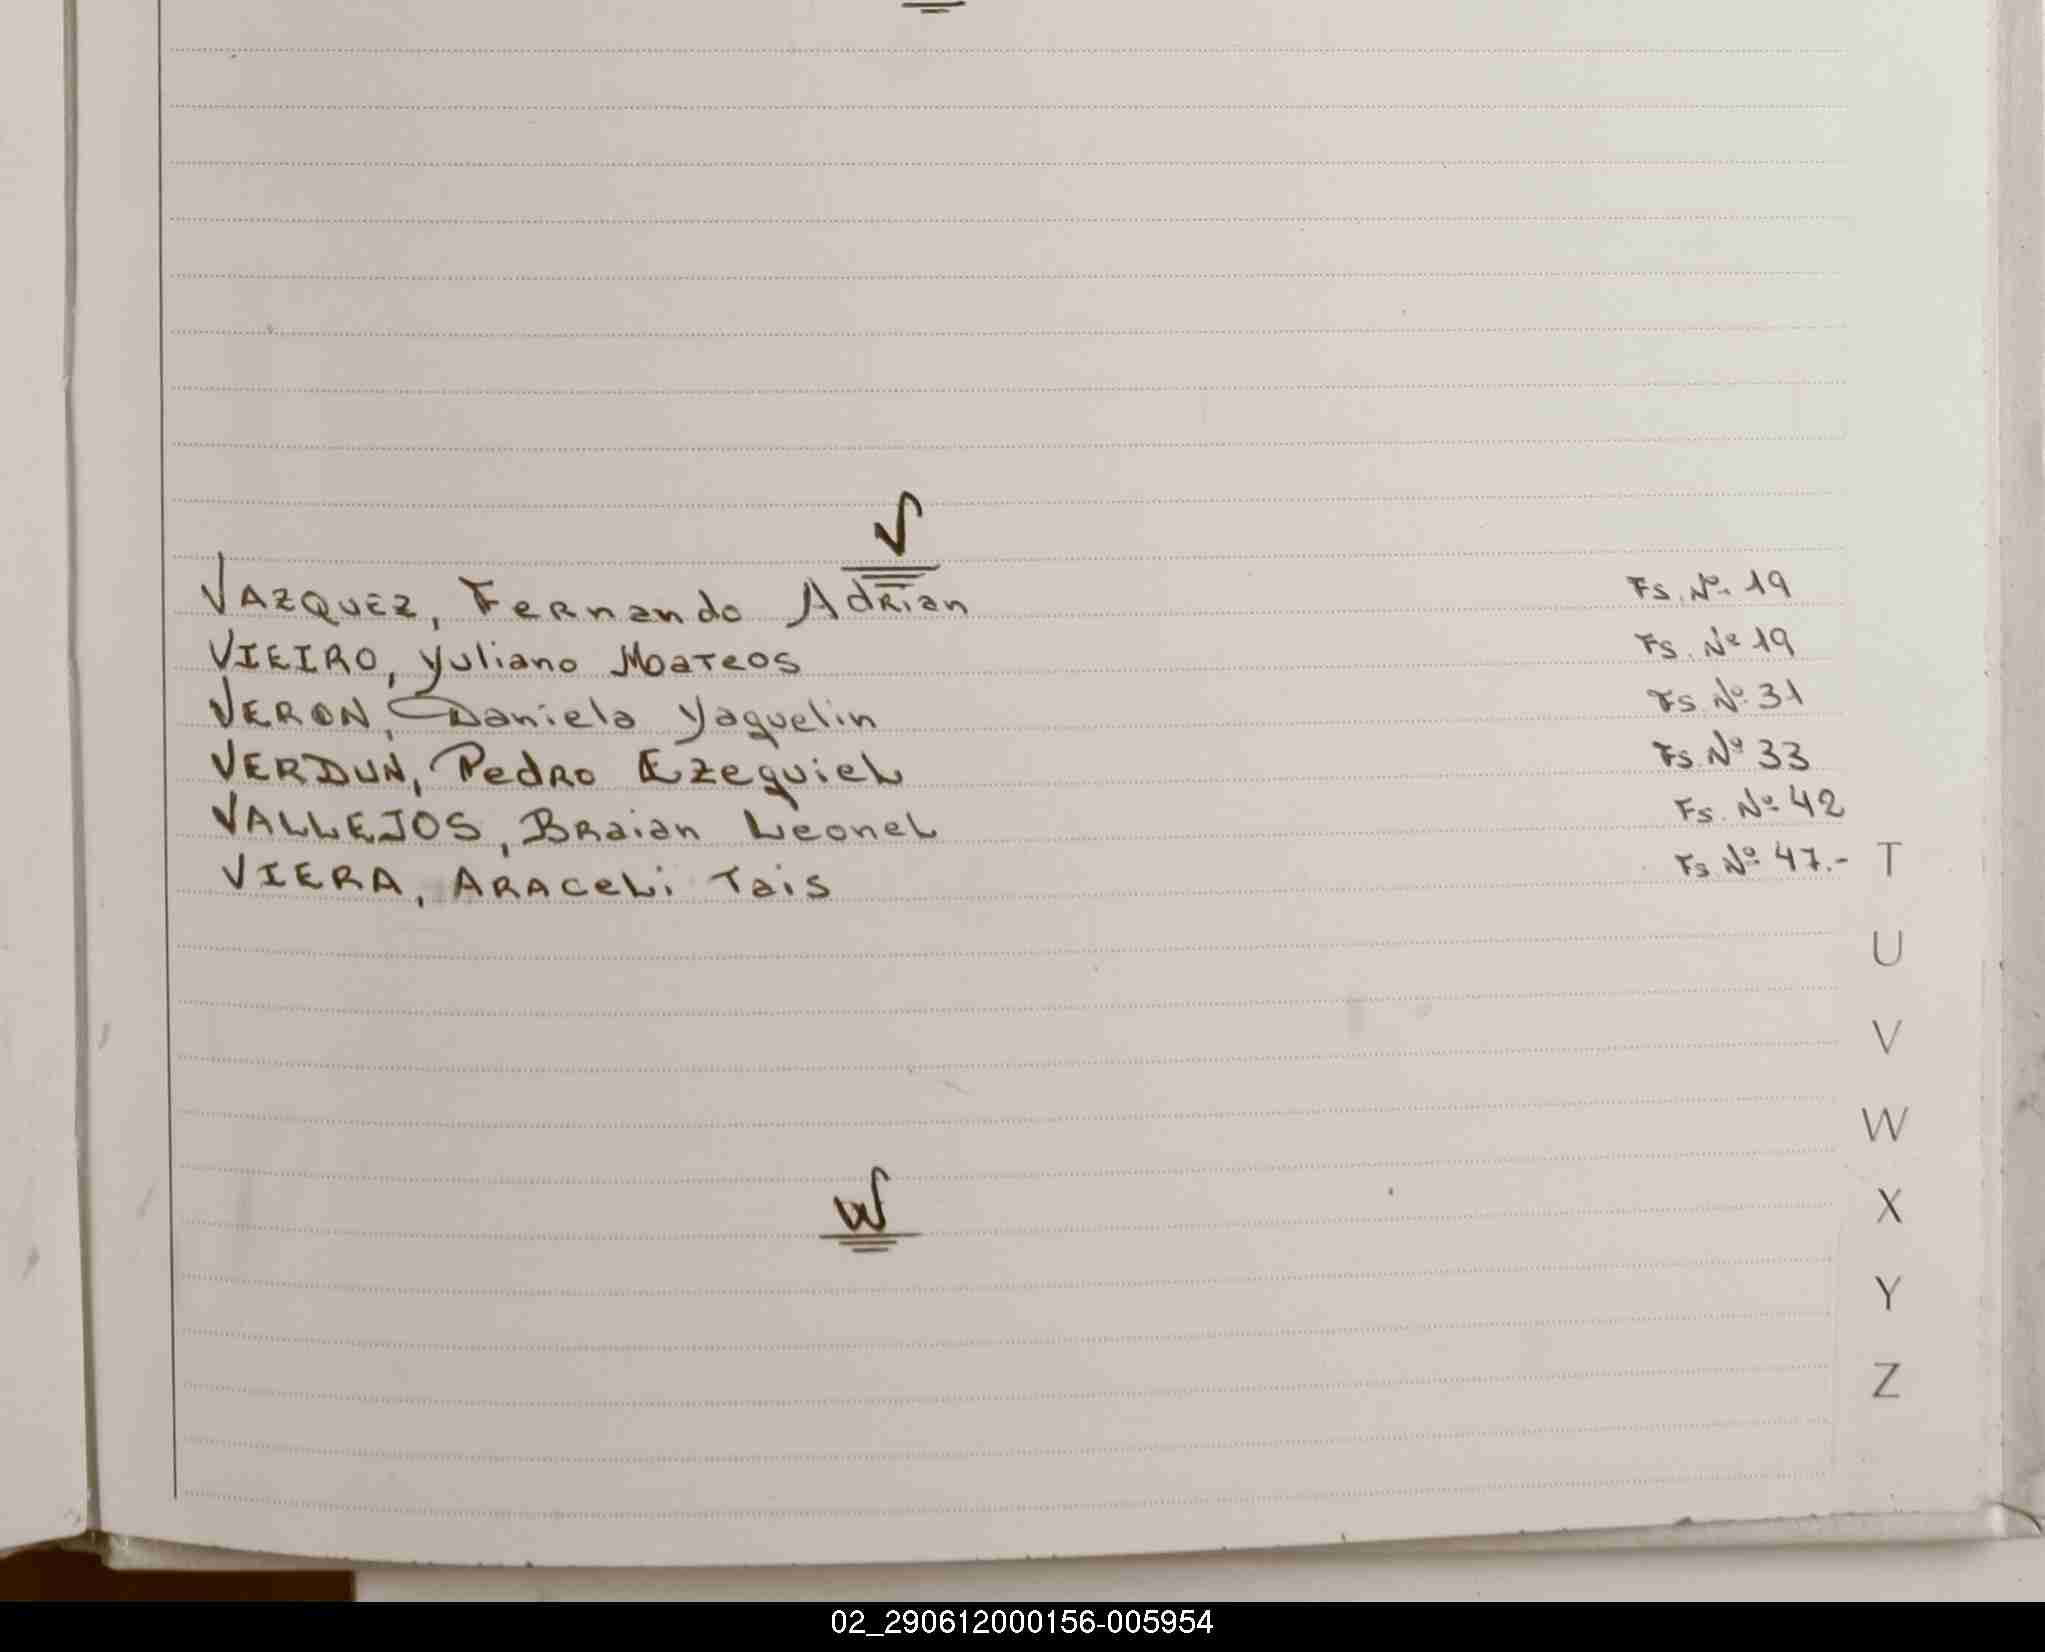 V
VAZQUEZ, Fernando Adrian Fs. Nº 19
VIEIRO, Yuliano Moateos Fs. Nº 19
VERON, Daniela Yaquelin Fs. Nº 31
VERDUN, Pedro Ezequiel Fs. Nº 33
VALLEJOS, Braian Leonel Fs. Nº 42
VIERA, ARACeLi Tais Fs. Nº 47.-
W
T
U
V
W
X
Y
Z
02_290612000156-005954